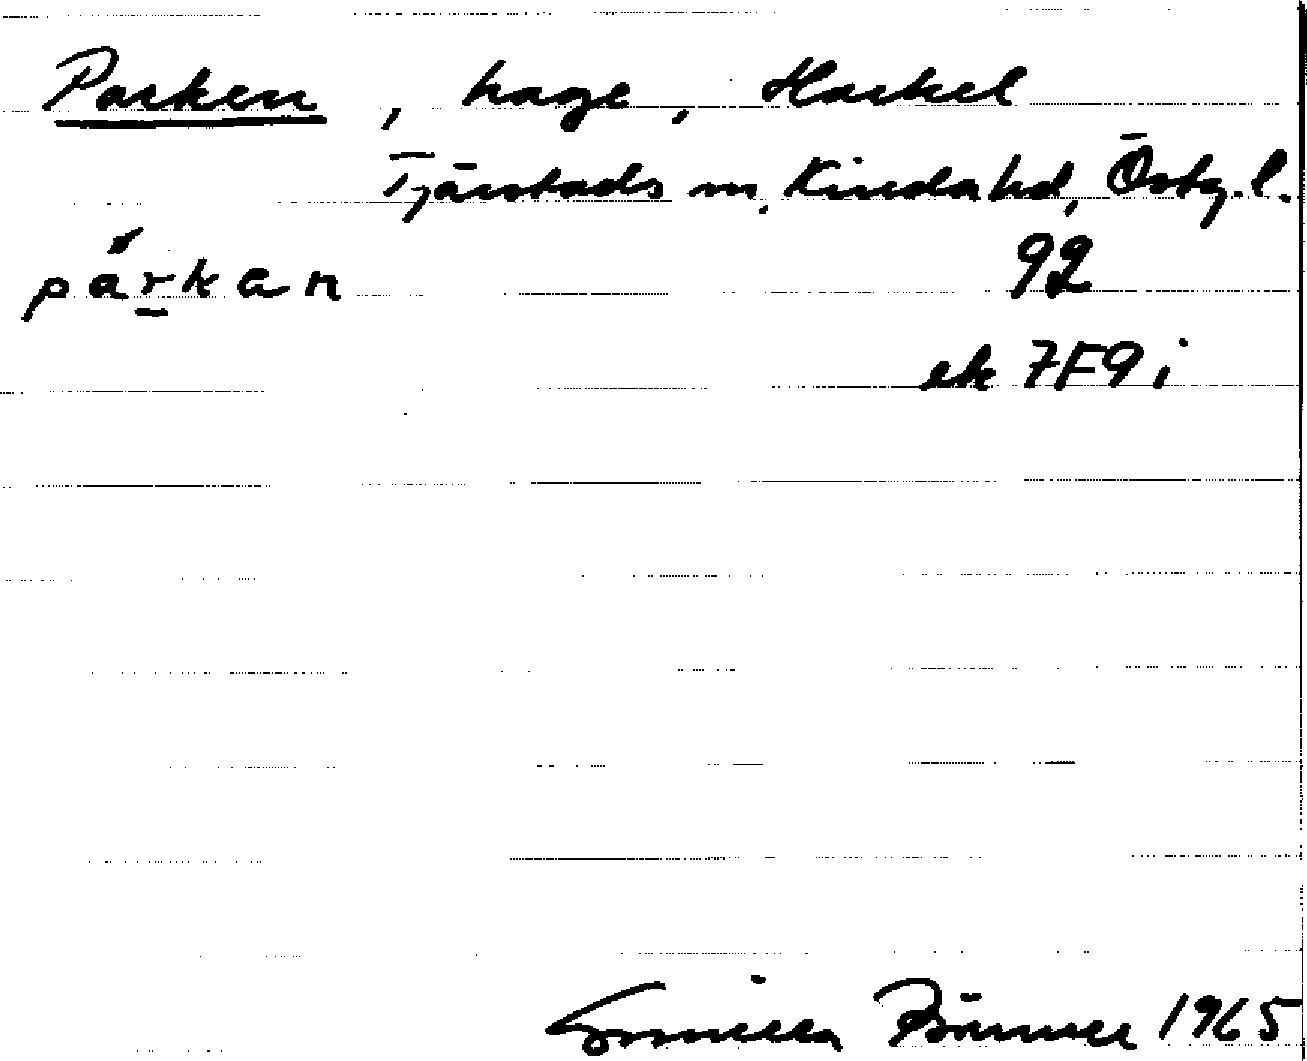 Parken, hage, Harkel
Tjärstads sn, Kinda hd, Östg. l.
pårkan
92
ek 7F9i
Gunilla 1965